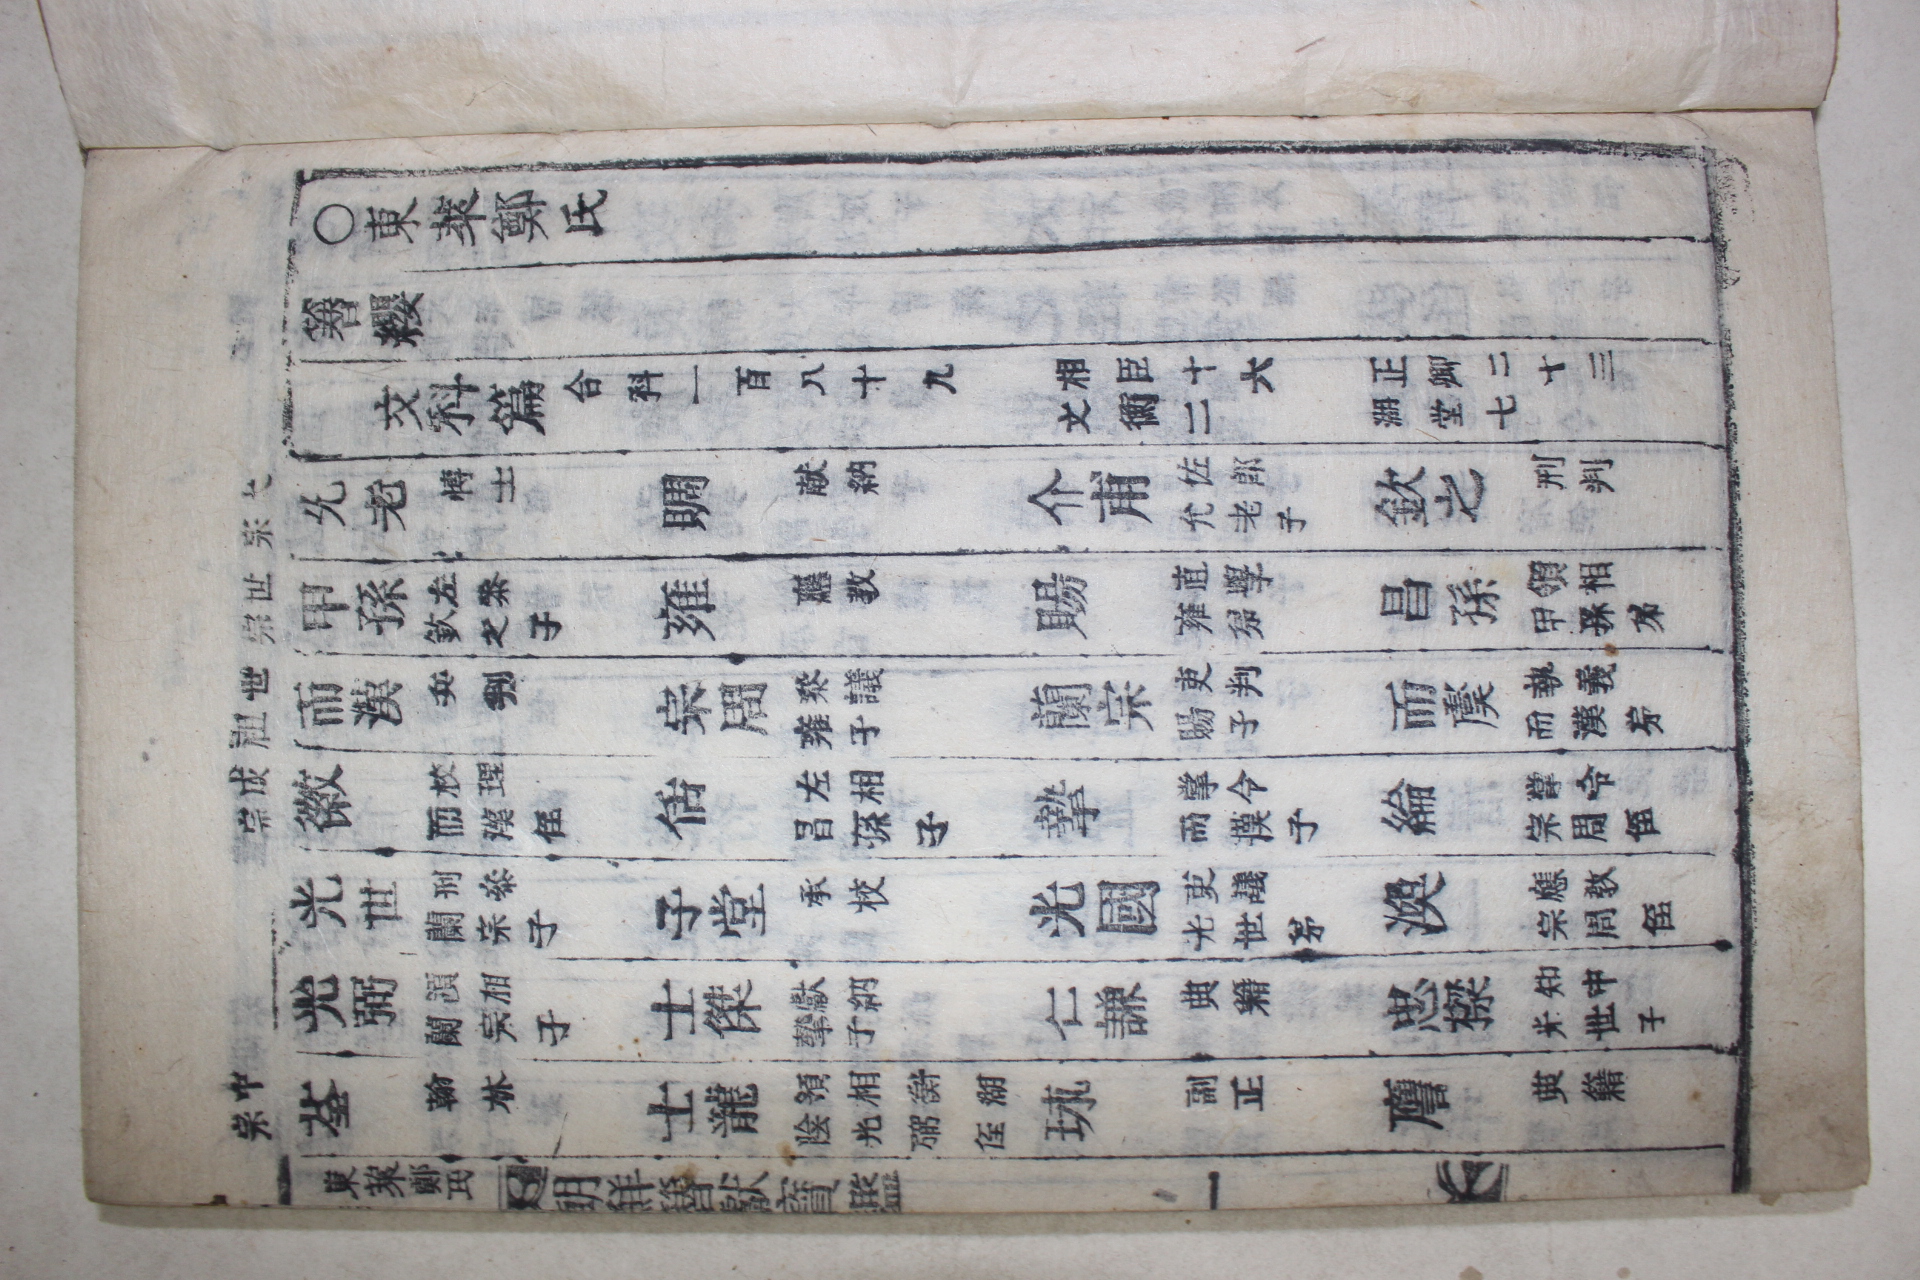 ○東萊鄭氏
簪纓
文科篇 合科一百八十九 相臣十六 文衡二 正卿二十三 湖堂七
太宗
允老 博士 賙 献納 介甫 佐郎 允老子 欽之 刑判
世宗
甲孫 左參 欽之子 雍 應教 賜 直學 雍弟 昌孫 領相 甲孫弟
世祖
而漢 兵判 宗周 參議 雍子 蘭宗 吏判 賜子 而虞 執義 而漢弟
成宗
徽 校理 而漢侄 佸 左相 昌孫子 摯 掌令 而漢子 綸 掌令 宗周侄
光世 刑參 蘭宗子 子堂 承校 光國 吏議 光世弟 渙 應教 宗周侄
光弼 領相 蘭宗子 士傑 獻納 摯子 仁謙 典籍 忠樑 知中 光世子
中宗
荃 翰林 士龍 領相 衡 湖 陰 光弼侄 珫 副正 譍 典籍
東萊鄭氏 朝鮮簪獻寶鑑 一